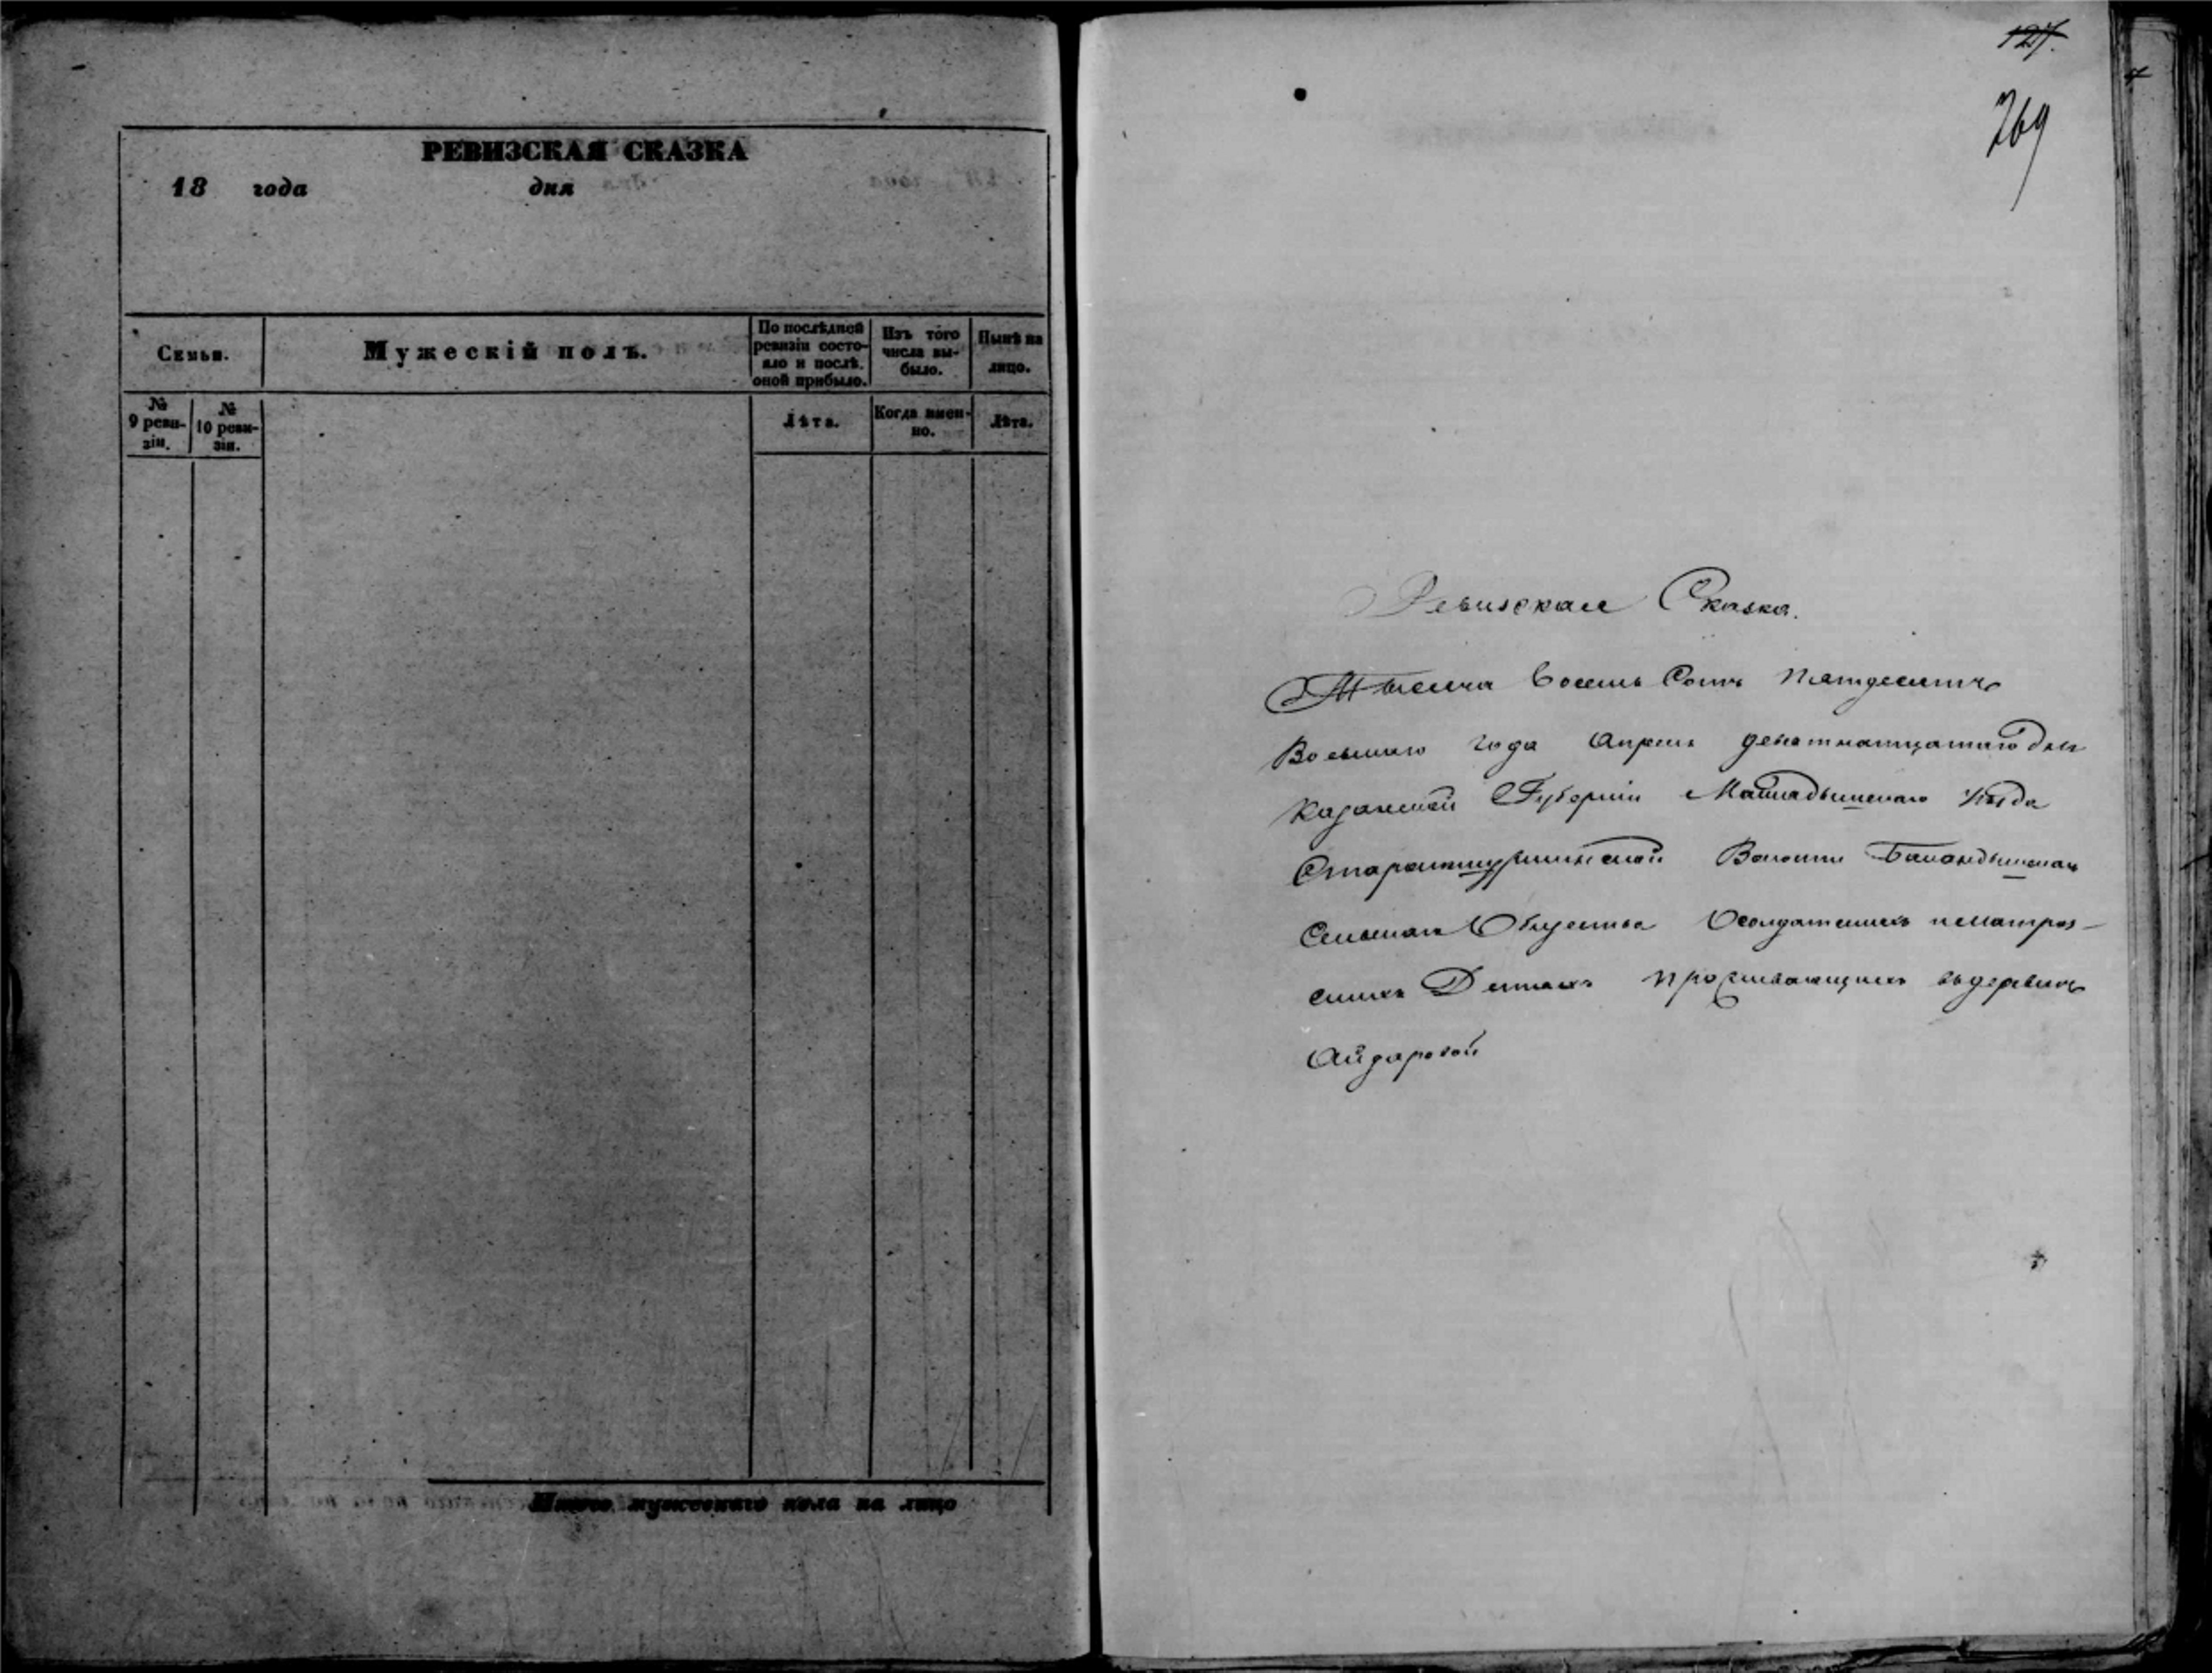 РЕВИЗСКАЯ СКАЗКА
18 года дня
Семьи.
Мужескій полъ.
По послѣдней ревизіи состо-
яло и послѣ.
оной прибыло.
Изъ того
числа вы-
было.
Нынѣ на
лицо.
№
9 реви-
зіи.
№
10 реви-
зіи.
Лѣта.
Когда имен-
но.
Лѣта.
Итого мужескаго пола на лицо
127.
769
Ревизская Сказка.
Тысяча восемь Сотъ пятдесятъ
Восьмаго года Апреля девятнатцатаго дня
Казанской Губерніи Мамадышскаго Уѣзда
Старо Волости
Сельскаго Общества Осолдатскихъ иматроз-
скихъ Детяхъ проживающихъ въдеревне
Айдаровой